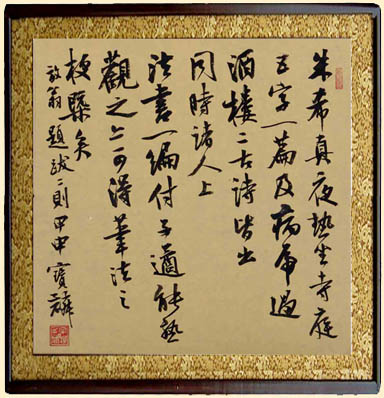 朱希真夜熱坐寺庭
五字一篇及病過
酒樓二古詩皆出
同時諸人上
法書一編付子遹能熟
觀之亦可得筆法之
梗槩矣
放翁題跋二則甲申寶麟